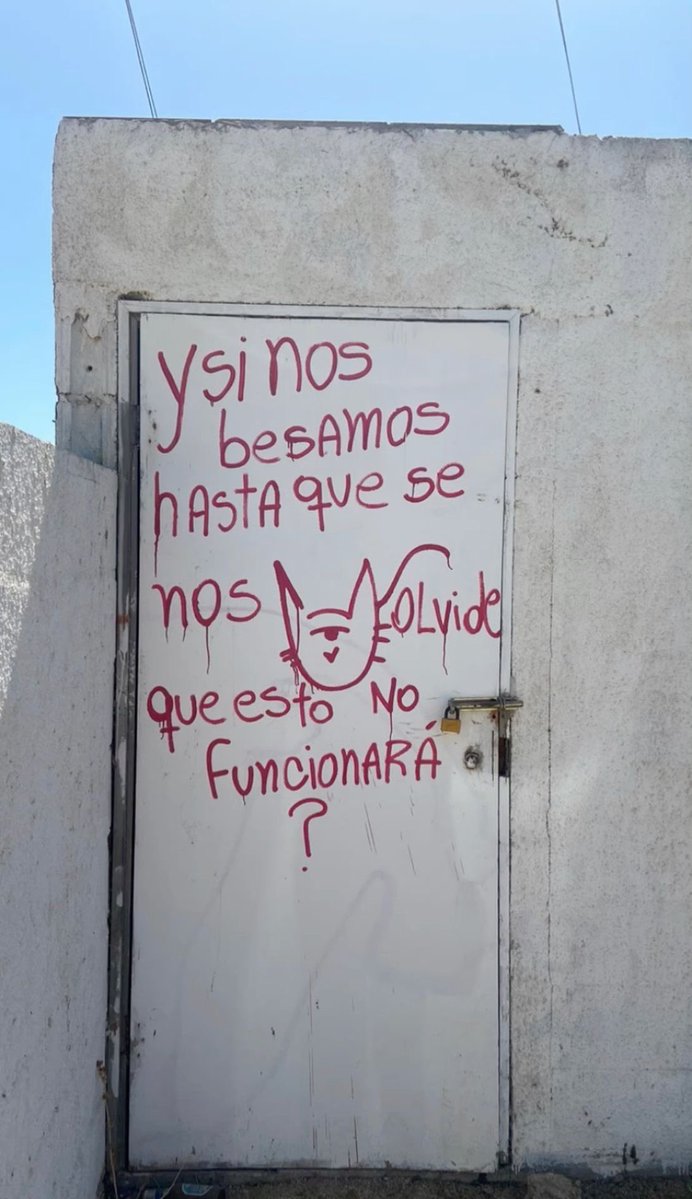 y si nos
besAmos
hAstA que se
nos OLvide
que esto No
funcionARÁ
?